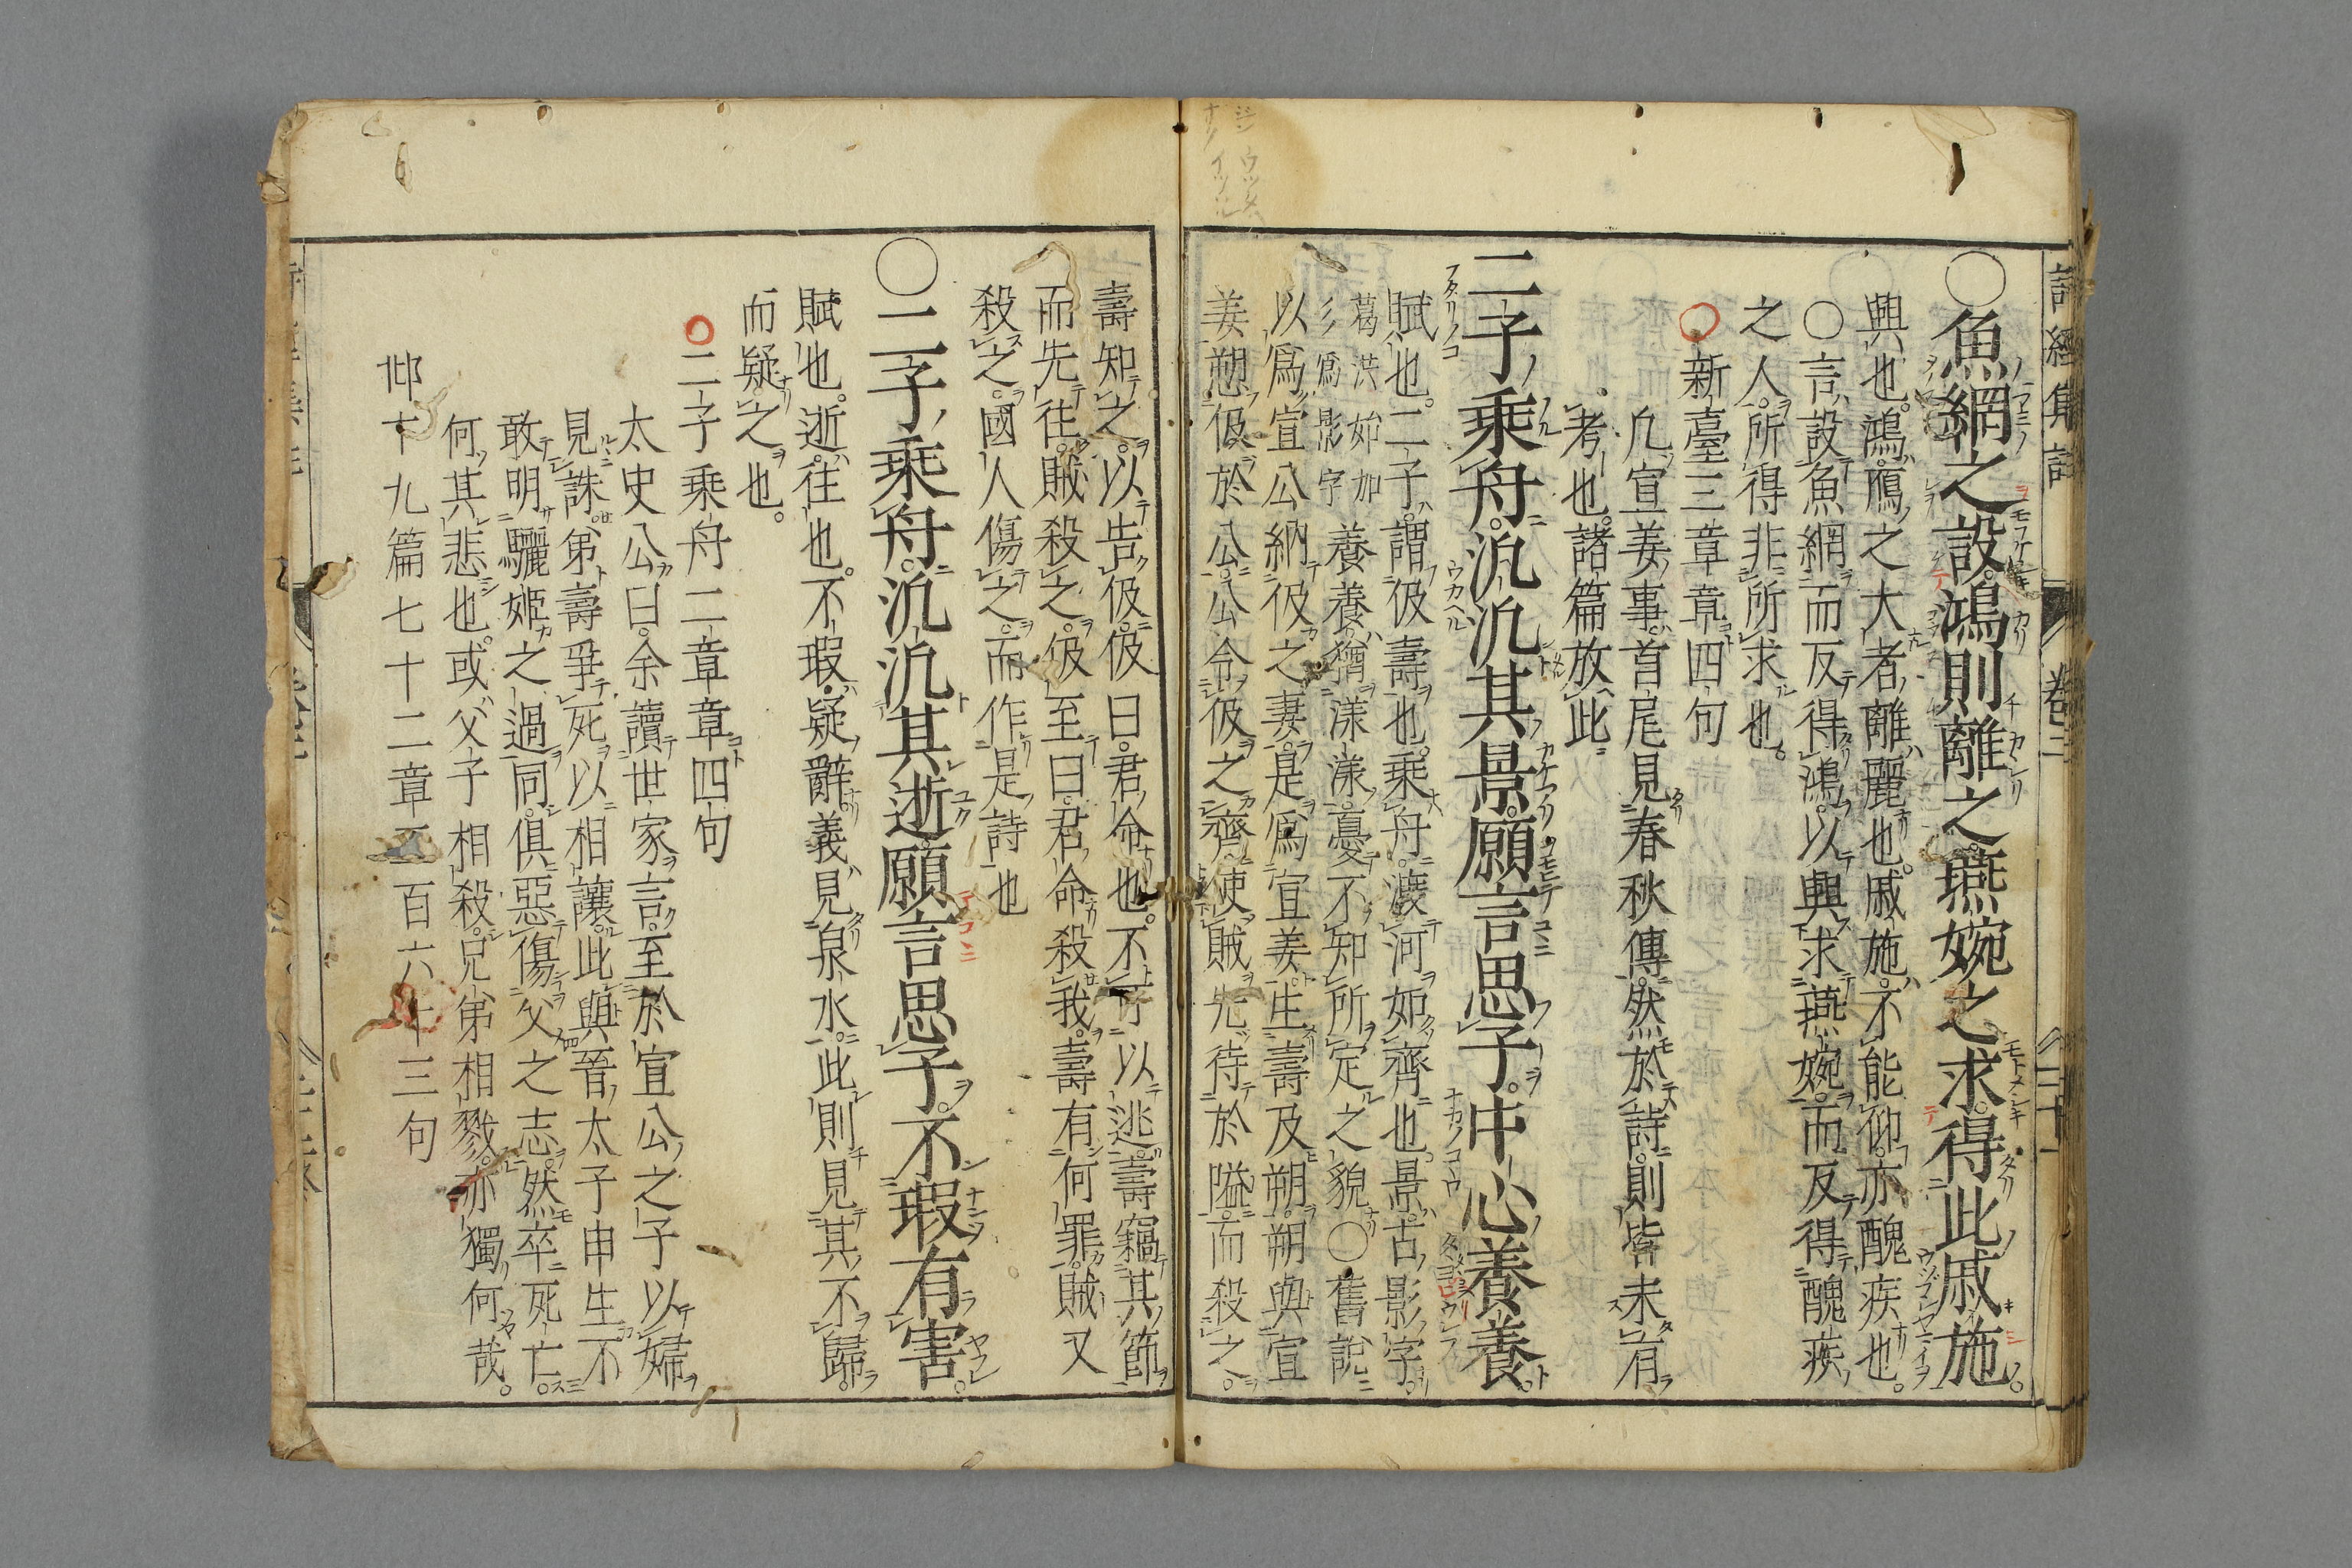 詩經集註 卷二 二十一
○魚網之設。鴻則離之。燕婉之求。得此戚施。
興也。鴻。鴈之大者。離。麗也。戚施。不能仰。亦醜疾也。
○言設魚網而反得鴻。以興求燕婉。而反得醜疾
之人。所得非所求也。
○新臺三章章四句
凡宣姜事。首尾見春秋傳。然於詩。則皆未有
考也。諸篇放此
二子乘舟。汎汎其景。願言思子。中心養養。
賦也。二子。謂伋壽也。乘舟。渡河如齊也。景。古影字。
葛洪如加
彡爲影字
養養。猶漾漾。憂不知所定之貌○舊說
以爲宣公納伋之妻。是爲宣姜。生壽及朔。朔與宣
姜愬伋於公。公令伋之齊。使賊先待於隘而殺之。
壽知之。以告伋。伋曰。君命也。不可以逃。壽竊其節
而先往。賊殺之。伋至曰。君命殺我。壽有何罪。賊又
殺之。國人傷之。而作是詩也
○二子乘舟。汎汎其逝。願言思子。不瑕有害。
賦也。逝。往也。不瑕。疑辭。義見泉水。此則見其不歸。
而疑之也。
○二子乘舟二章章四句
太史公曰。余讀世家言。至於宣公之子以婦
見誅。弟壽爭死以相讓。此與晉太子申生不
敢明驪姬之過同。俱惡傷父之志。然卒死亡。
何其悲也。或父子相殺。兄弟相戮。亦獨何哉。
邶十九篇七十二章三百六十三句